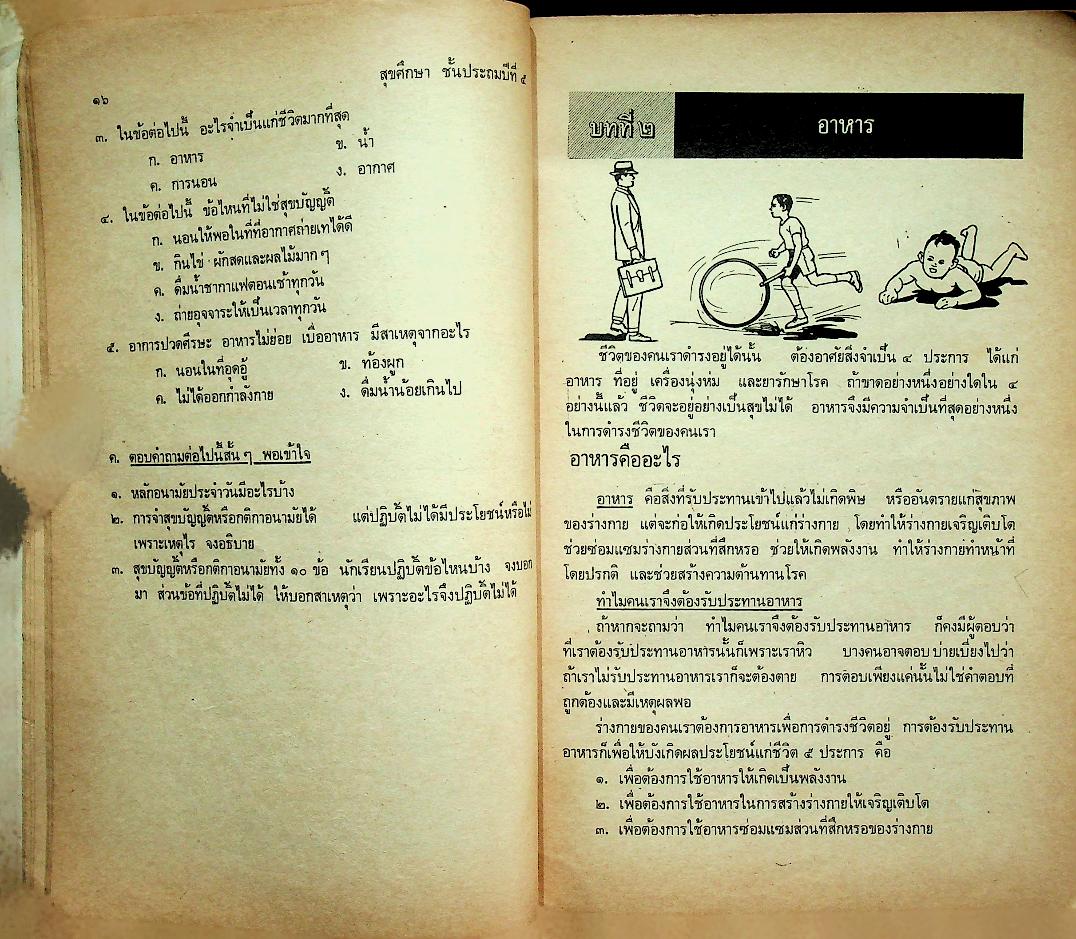 สุขศึกษา ชั้นประถมปีที่ ๕
๑๖
๓. ในข้อต่อไปนี้ อะไรจำเป็นแก่ชีวิตมากที่สุด
ก. อาหาร ข. น้ำ
ค. การนอน ง. อากาศ
๔. ในข้อต่อไปนี้ ข้อไหนที่ไม่ใช่สุขบัญญัติ
ก. นอนให้พอในที่ที่อากาศถ่ายเทได้ดี
ข. กินไข่ ผักสดและผลไม้มาก ๆ
ค. ดื่มน้ำชากาแฟตอนเช้าทุกวัน
ง. ถ่ายอุจจาระให้เป็นเวลาทุกวัน
๕. อาการปวดศีรษะ อาหารไม่ย่อย เบื่ออาหาร มีสาเหตุจากอะไร
ก. นอนในที่อุดอู้ ข. ท้องผูก
ค. ไม่ได้ออกกำลังกาย ง. ดื่มน้ำน้อยเกินไป
ค. ตอบคำถามต่อไปนี้สั้น ๆ พอเข้าใจ
๑. หลักอนามัยประจำวันมีอะไรบ้าง
๒. การจำสุขบัญญัติหรือกติกาอนามัยได้ แต่ปฏิบัติไม่ได้มีประโยชน์หรือไม่
เพราะเหตุไร จงอธิบาย
๓. สุขบัญญัติหรือกติกาอนามัยทั้ง ๑๐ ข้อ นักเรียนปฏิบัติข้อไหนบ้าง จงบอก
มา ส่วนข้อที่ปฏิบัติไม่ได้ ให้บอกสาเหตุว่า เพราะอะไรจึงปฏิบัติไม่ได้
บทที่ ๒ อาหาร
ชีวิตของคนเราดำรงอยู่ได้นั้น ต้องอาศัยสิ่งจำเป็น ๔ ประการ ได้แก่
อาหาร ที่อยู่ เครื่องนุ่งห่ม และยารักษาโรค ถ้าขาดอย่างหนึ่งอย่างใดใน ๔
อย่างนี้แล้ว ชีวิตจะอยู่อย่างเป็นสุขไม่ได้ อาหารจึงมีความจำเป็นที่สุดอย่างหนึ่ง
ในการดำรงชีวิตของคนเรา
อาหารคืออะไร
อาหาร คือสิ่งที่รับประทานเข้าไปแล้วไม่เกิดพิษ หรืออันตรายแก่สุขภาพ
ของร่างกาย แต่จะก่อให้เกิดประโยชน์แก่ร่างกาย โดยทำให้ร่างกายเจริญเติบโต
ช่วยซ่อมแซมร่างกายส่วนที่สึกหรอ ช่วยให้เกิดพลังงาน ทำให้ร่างกายทำหน้าที่
โดยปรกติ และช่วยสร้างความต้านทานโรค
ทำไมคนเราจึงต้องรับประทานอาหาร
ถ้าหากจะถามว่า ทำไมคนเราจึงต้องรับประทานอาหาร ก็คงมีผู้ตอบว่า
ที่เราต้องรับประทานอาหารนั้นก็เพราะเราหิว บางคนอาจตอบบ่ายเบี่ยงไปว่า
ถ้าเราไม่รับประทานอาหารเราก็จะต้องตาย การตอบเพียงแค่นั้นไม่ใช่คำตอบที่
ถูกต้องและมีเหตุผลพอ
ร่างกายของคนเราต้องการอาหารเพื่อการดำรงชีวิตอยู่ การต้องรับประทาน
อาหารก็เพื่อให้บังเกิดผลประโยชน์แก่ชีวิต ๕ ประการ คือ
๑. เพื่อต้องการใช้อาหารให้เกิดเป็นพลังงาน
๒. เพื่อต้องการใช้อาหารในการสร้างร่างกายให้เจริญเติบโต
๓. เพื่อต้องการใช้อาหารซ่อมแซมส่วนที่สึกหรอของร่างกาย